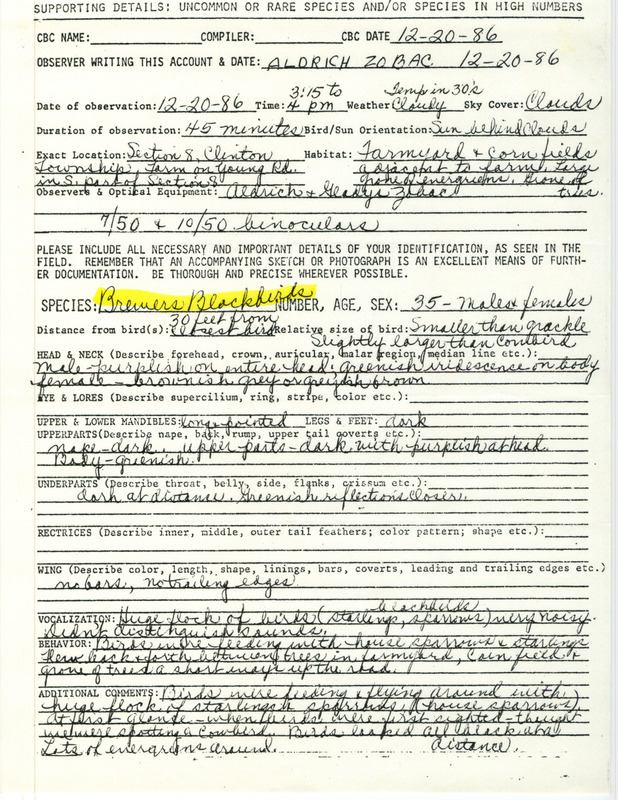 SUPPORTING DETAILS: UNCOMMON OR RARE SPECIES AND/OR SPECIES IN HIGH NUMBERS
CBC NAME: COMPILER: CBC DATE 12-20-86
OBSERVER WRITING THIS ACCOUNT & DATE: ALDRICH ZOBAC 12-20-86
3:15 to Temp in 30's
Date of observation: 12-20-86 Time: 4 pm Weather Cloudy Sky Cover: Clouds
Duration of observation: 45 minutes Bird/Sun Orientation: Sun behind clouds
Exact Location: Section 8, Clinton Habitat: Farmyard & corn fields
Township, Farm on Young Rd. adjacent to farm. Large
in S. part of Section 8 grove of evergreens. Grove of
Observers & Optical Equipment: Aldrich & Gladys Zobac trees.
7/50 & 10/50 binoculars
PLEASE INCLUDE ALL NECESSARY AND IMPORTANT DETAILS OF YOUR IDENTIFICATION, AS SEEN IN THE
FIELD. REMEMBER THAT AN ACCOMPANYING SKETCH OR PHOTOGRAPH IS AN EXCELLENT MEANS OF FURTH-
ER DOCUMENTATION. BE THOROUGH AND PRECISE WHEREVER POSSIBLE.
SPECIES: Brewers Blackbirds NUMBER, AGE, SEX: 35 - Males & females
30 feet from
Distance from bird(s): closest bird Relative size of bird: Smaller than grackle
Slightly larger than Cowbird
HEAD & NECK (Describe forehead, crown, auricular, malar region, median line etc.):
Male - purplish on entire head: Greenish iridescence on body
female - brownish grey or greyish brown
EYE & LORES (Describe supercilium, ring, stripe, color etc.):
UPPER & LOWER MANDIBLES: long-pointed LEGS & FEET: dark
UPPERPARTS (Describe nape, back, rump, upper tail coverts etc.):
nape-dark. upper-parts-dark with purplish at head.
Body-greenish.
UNDERPARTS (Describe throat, belly, side, flanks, crissum etc.):
dark at distance. Greenish reflections closer.
RECTRICES (Describe inner, middle, outer tail feathers; color pattern; shape etc.):
WING (Describe color, length, shape, linings, bars, coverts, leading and trailing edges etc.)
no bars, no trailing edges
blackbirds
VOCALIZATION: Huge flock of birds (starlings, sparrows) very noisy.
Didn't distinguish sounds.
BEHAVIOR: Birds were feeding with house sparrows & starlings
flew back & forth between trees in farmyard, corn field &
grove of trees a short ways up the road.
ADDITIONAL COMMENTS: Birds were feeding & flying around with
huge flock of starlings & (house sparrows).
At first glance - when birds were first sighted - thought
we were spotting a Cowbird. Birds looked all black at a
Lots of evergreens around. distance.